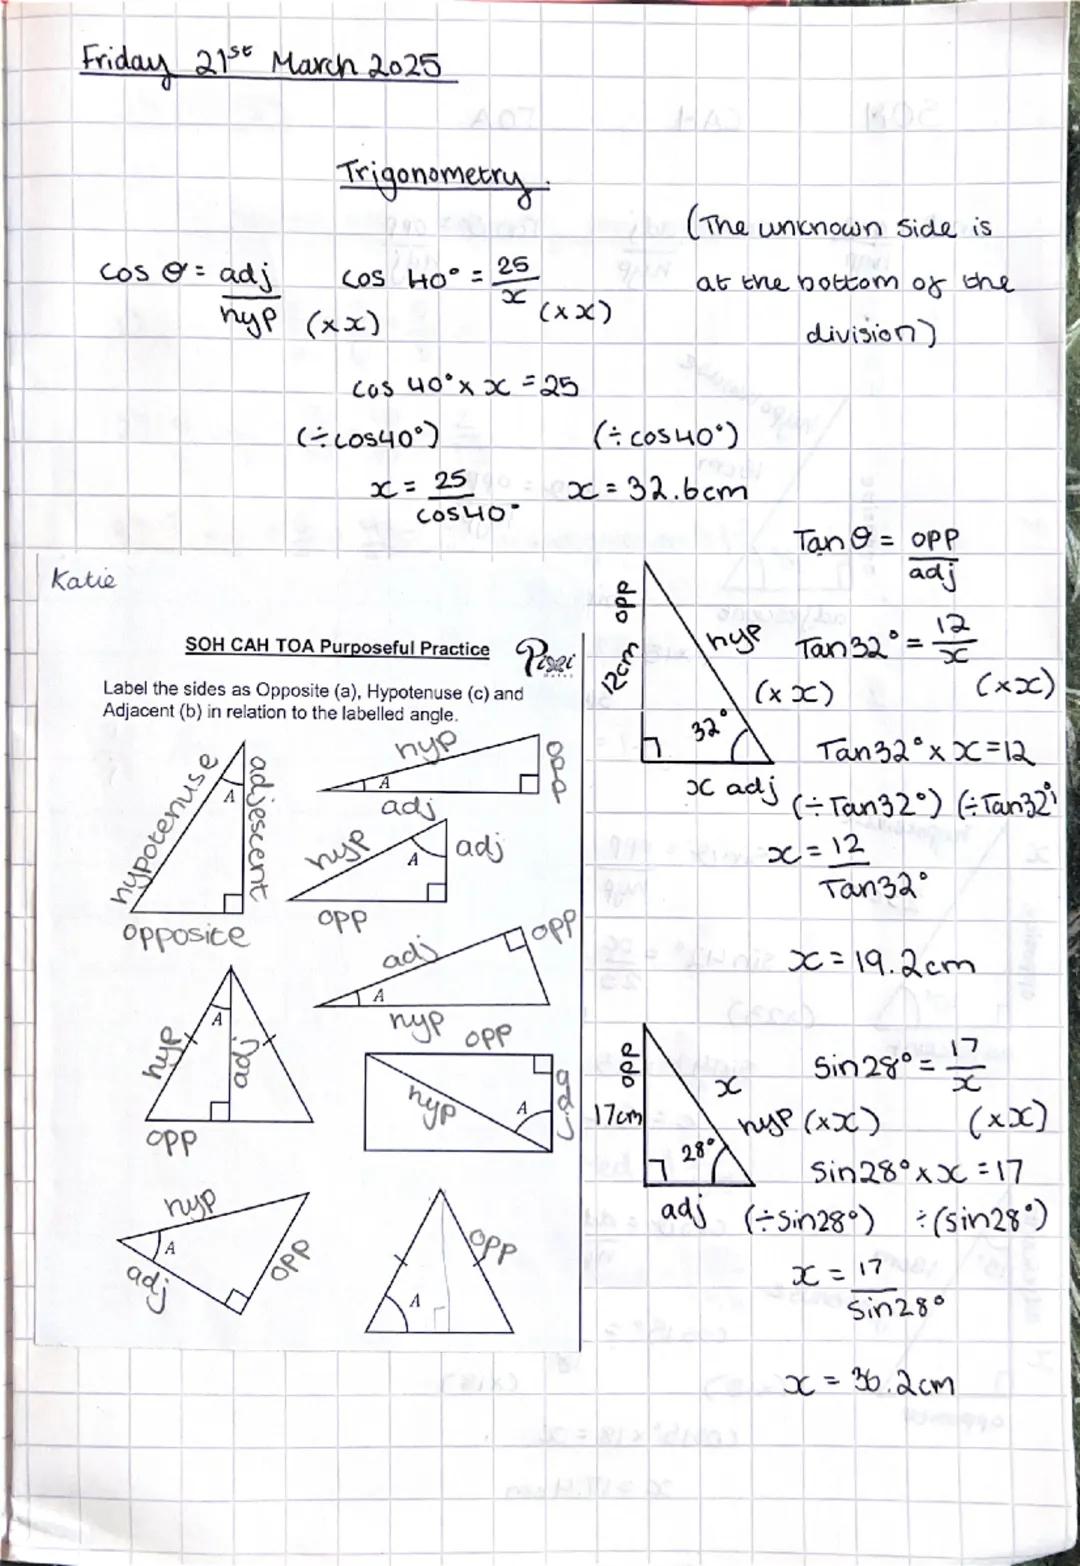 Friday 21st March 2025
Trigonometry.
(The unknown side is
at the bottom of the
division)
cos θ = adj/hyp
cos 40° = 25/x
(×x) (×x)
cos 40° × x = 25
(÷cos40°) (÷cos40°)
x = 25/cos40°
x = 32.6cm
Katie
SOH CAH TOA Purposeful Practice
Label the sides as Opposite (a), Hypotenuse (c) and
Adjacent (b) in relation to the labelled angle.
hypotenuse
A
adjescent
opposite
hyp
A
opp
adj
hyp
A
adj
opp
adj
opp
A
hyp
hyp
A
adj
opp
opp
hyp
A
adj
hyp
A
adj
opp
opp
A
opp
12cm
hyp
32°
x adj
Tan θ = opp/adj
Tan 32° = 12/x
(×x) (×x)
Tan32° × x = 12
(÷Tan32°) (÷Tan32°)
x = 12/Tan32°
x = 19.2cm
opp
17cm
x
hyp
28°
adj
Sin 28° = 17/x
(×x) (×x)
Sin28° × x = 17
(÷Sin28°) ÷(Sin28°)
x = 17/Sin28°
x = 36.2cm